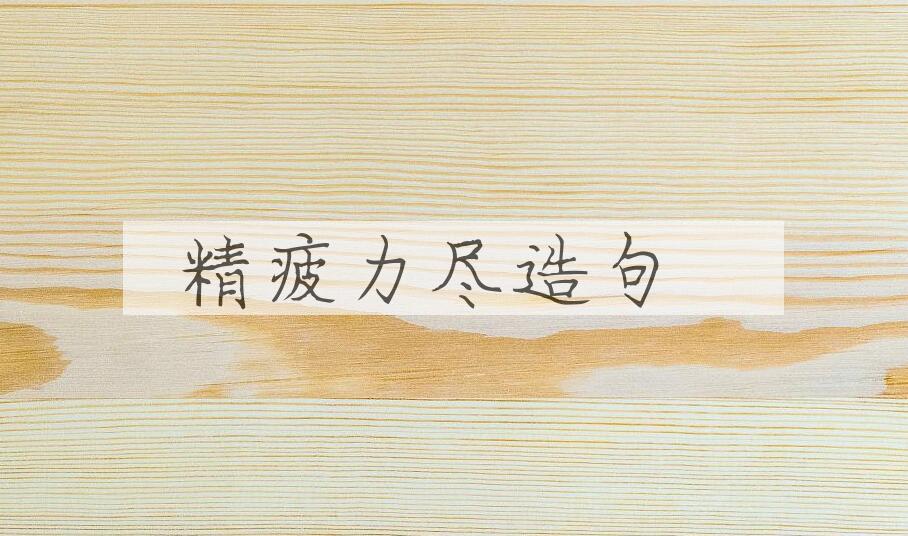 精疲力尽造句